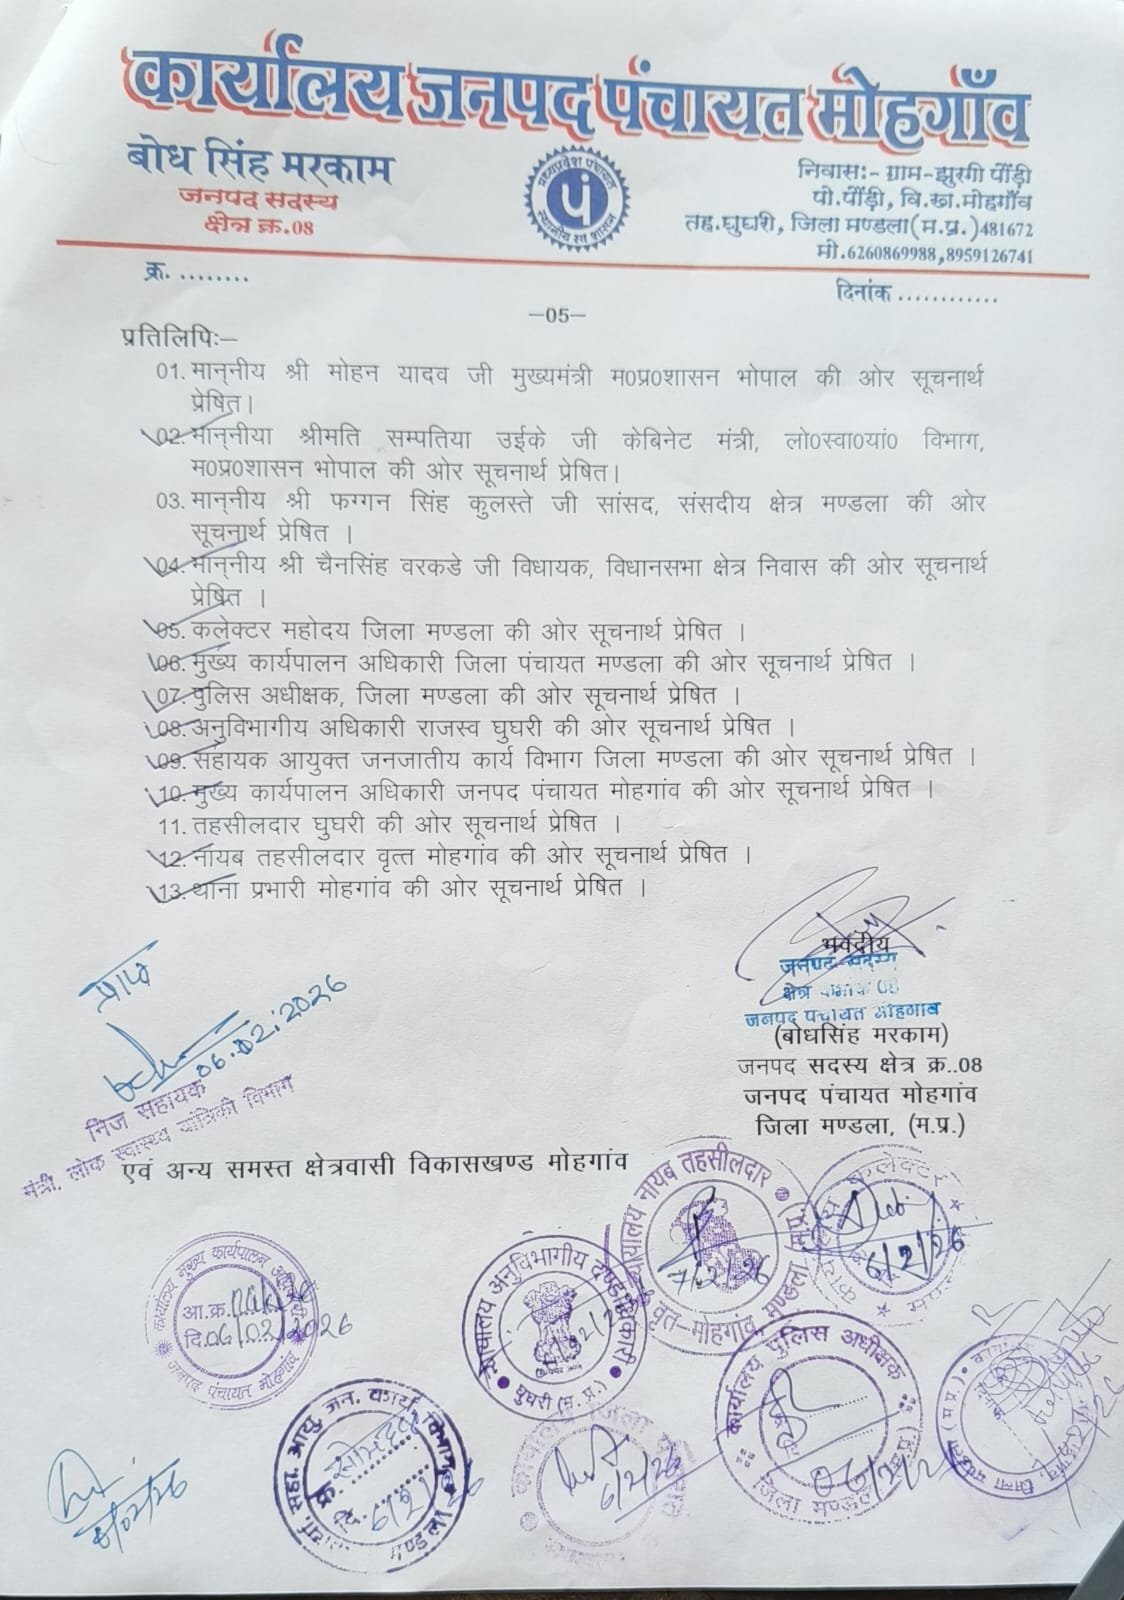 कार्यालय जनपद पंचायत मोहगाँव
बोध सिंह मरकाम
जनपद सदस्य
क्षेत्र क्र.08
मध्यप्रदेश पंचायत
पं
स्थानीय स्व शासन
निवासः- ग्राम-झुरगी पौंड़ी
पो.पौंड़ी, वि.ख.मोहगाँव
तह.घुघरी, जिला मण्डला(म.प्र.)481672
मो.6260869988,8959126741
क्र. ........
दिनांक ............
—05—
प्रतिलिपिः—
01. मान्‌नीय श्री मोहन यादव जी मुख्यमंत्री म0प्र0शासन भोपाल की ओर सूचनार्थ
प्रेषित।
02. मान्‌नीया श्रीमति सम्पतिया उईके जी केबिनेट मंत्री, लो0स्वा0यां0 विभाग,
म0प्र0शासन भोपाल की ओर सूचनार्थ प्रेषित।
03. मान्‌नीय श्री फग्गन सिंह कुलस्ते जी सांसद, संसदीय क्षेत्र मण्डला की ओर
सूचनार्थ प्रेषित ।
04. मान्‌नीय श्री चैनसिंह वरकडे जी विधायक, विधानसभा क्षेत्र निवास की ओर सूचनार्थ
प्रेषित ।
05. कलेक्टर महोदय जिला मण्डला की ओर सूचनार्थ प्रेषित ।
06. मुख्य कार्यपालन अधिकारी जिला पंचायत मण्डला की ओर सूचनार्थ प्रेषित ।
07. पुलिस अधीक्षक, जिला मण्डला की ओर सूचनार्थ प्रेषित ।
08. अनुविभागीय अधिकारी राजस्व घुघरी की ओर सूचनार्थ प्रेषित ।
09. सहायक आयुक्त जनजातीय कार्य विभाग जिला मण्डला की ओर सूचनार्थ प्रेषित ।
10. मुख्य कार्यपालन अधिकारी जनपद पंचायत मोहगांव की ओर सूचनार्थ प्रेषित ।
11. तहसीलदार घुघरी की ओर सूचनार्थ प्रेषित ।
12. नायब तहसीलदार वृत्त मोहगांव की ओर सूचनार्थ प्रेषित ।
13. थाना प्रभारी मोहगांव की ओर सूचनार्थ प्रेषित ।
भवदीय
जनपद सदस्य
क्षेत्र क्रमांक 08
जनपद पंचायत मोहगांव
(बोधसिंह मरकाम)
जनपद सदस्य क्षेत्र क्र..08
जनपद पंचायत मोहगांव
जिला मण्डला, (म.प्र.)
प्राप्त
06.02.2026
निज सहायक
मंत्री, लोक स्वास्थ्य यांत्रिकी विभाग
एवं अन्य समस्त क्षेत्रवासी विकासखण्ड मोहगांव
कार्यालय मुख्य कार्यपालन अधिकारी
आ.क्र.
दि.06/02/2026
जनपद पंचायत मोहगांव
कार्यालय अनुविभागीय दण्डाधिकारी
घुघरी (म.प्र.)
कार्यालय नायब तहसीलदार
7/2/26
वृत-मोहगांव, मण्डला (म.प्र.)
कलेक्टर
6/2/26
कार्यालय पुलिस अधीक्षक
जिला मण्डला
सहा. आयु. जन. कार्य विभाग
क्र.
दि. 6/2/26
मण्डला
6/2/26